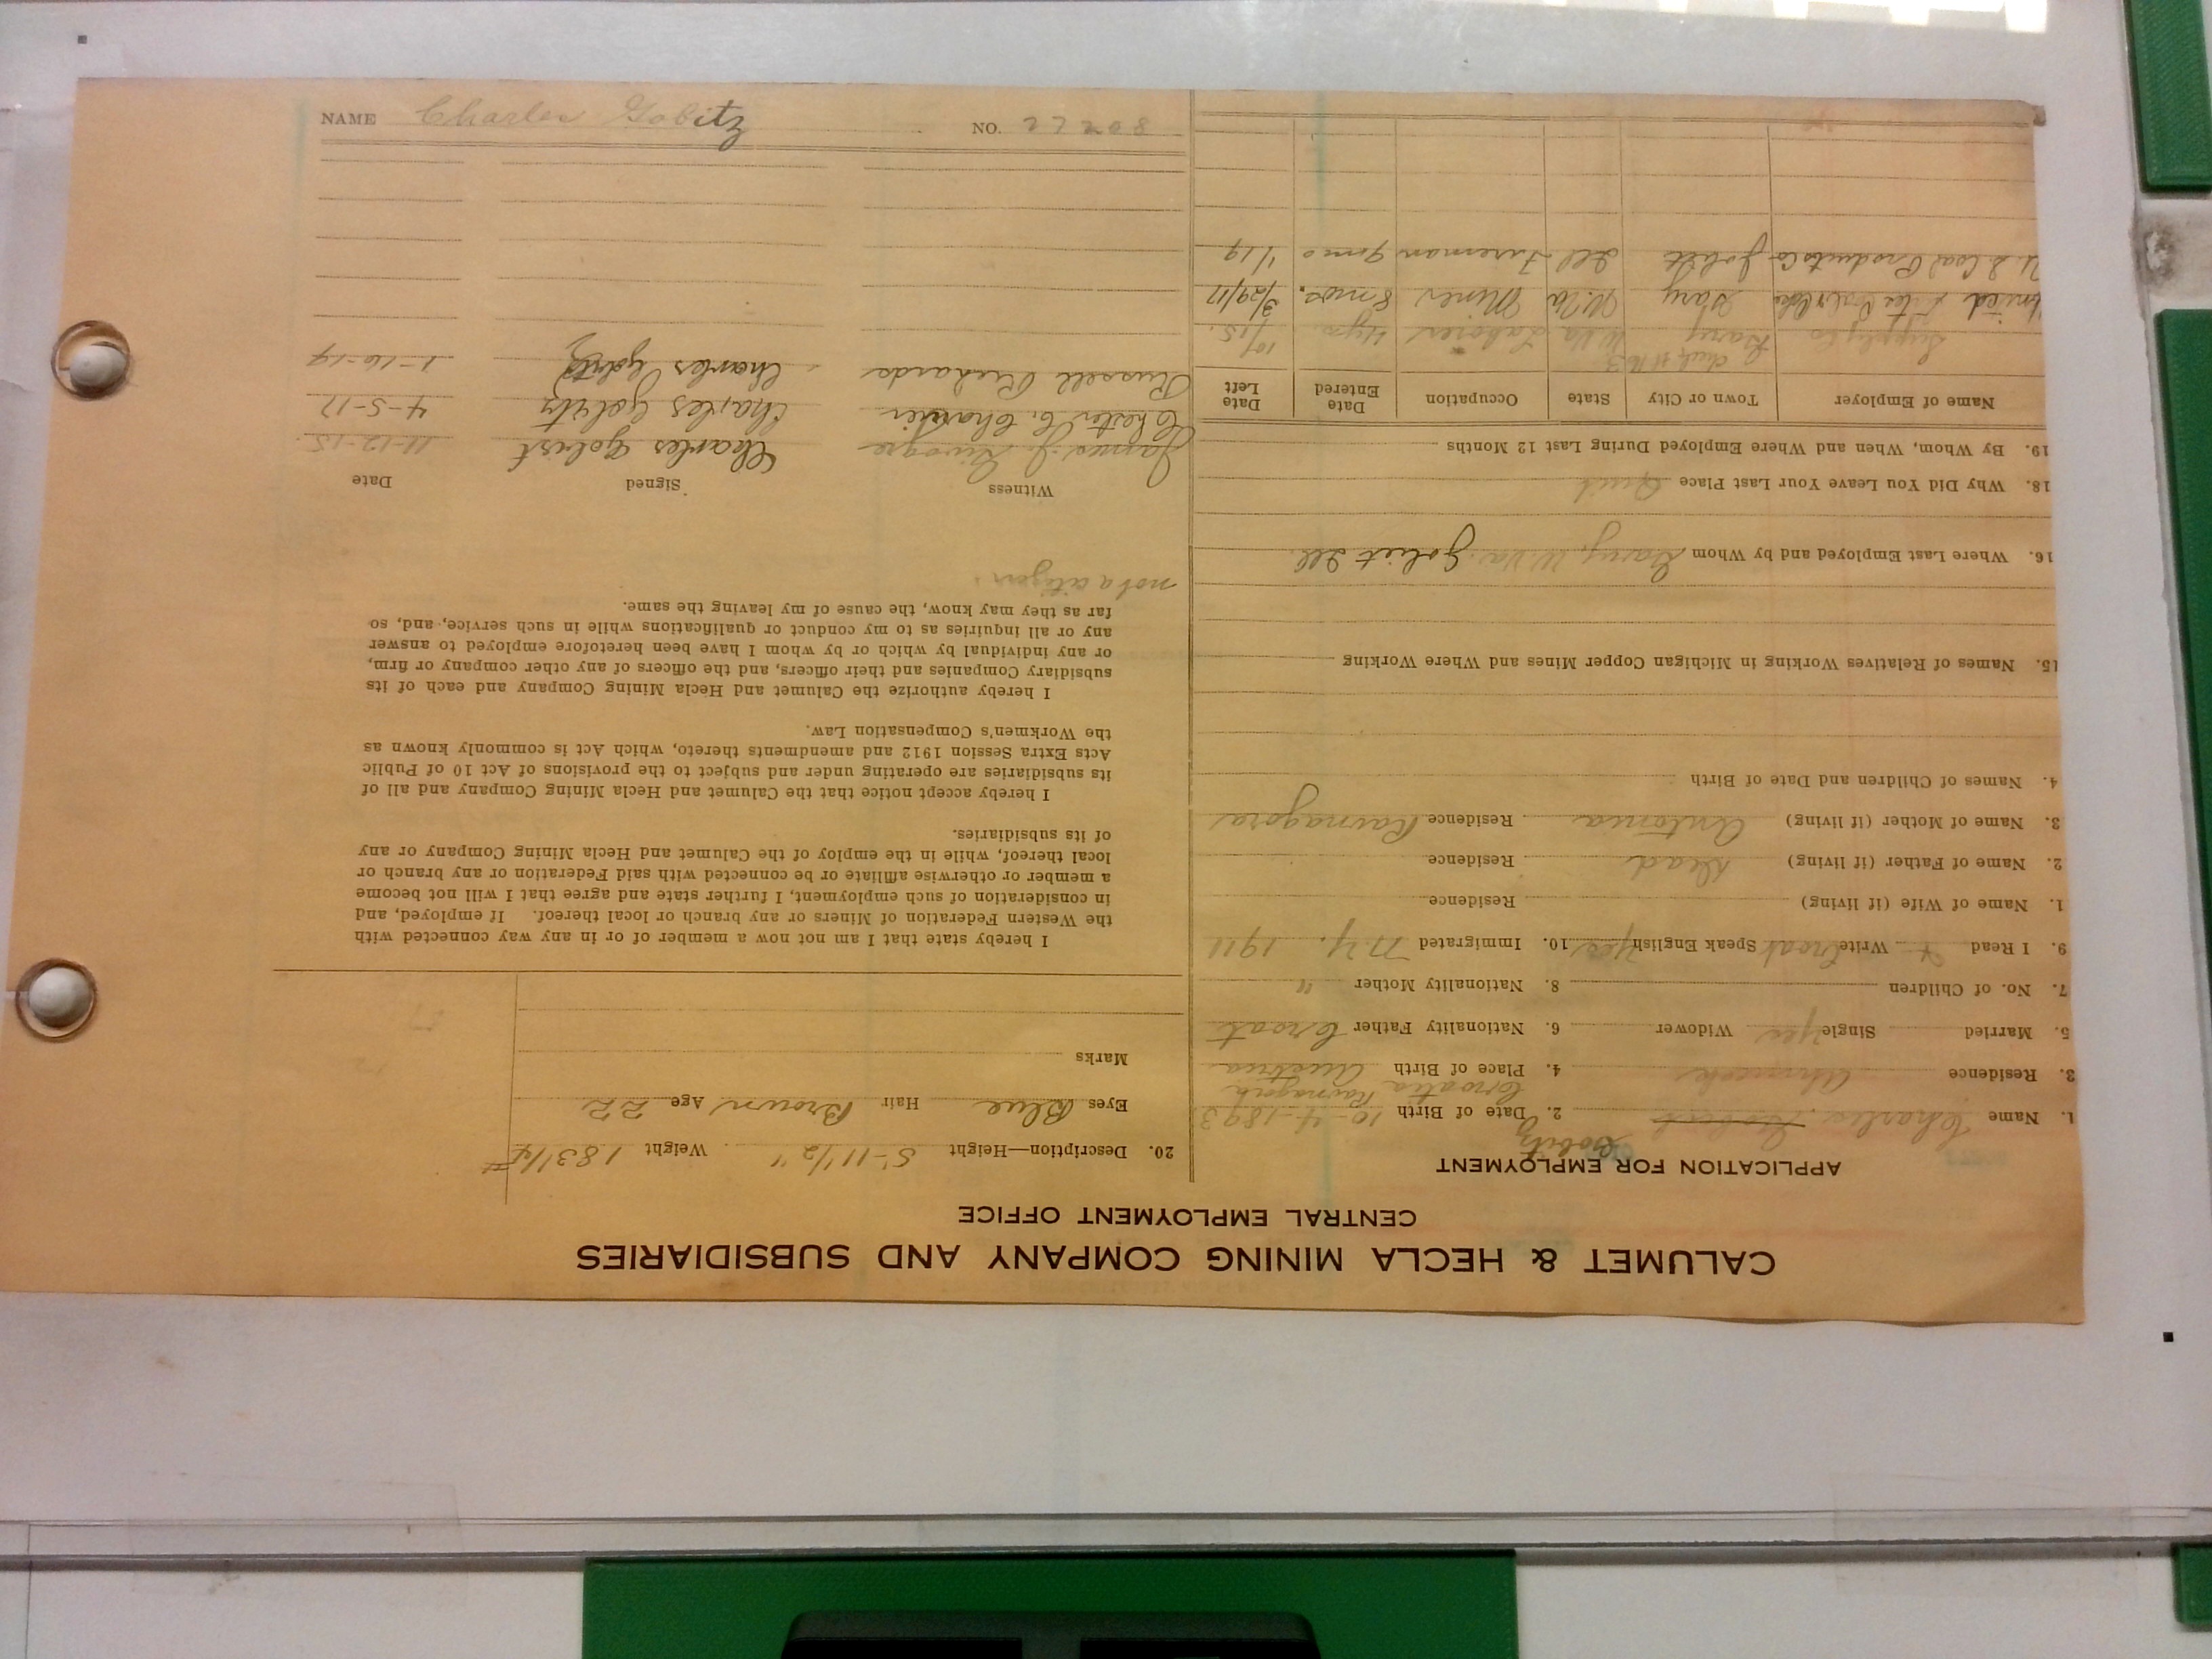 CALUMET & HECLA MINING COMPANY AND SUBSIDIARIES
CENTRAL EMPLOYMENT OFFICE
APPLICATION FOR EMPLOYMENT
Gobitz
1. Name Charles Gobist 2. Date of Birth 10-4-1893
Croatia Ravnagora
3. Residence Ahmeek 4. Place of Birth Austria
5. Married Single Yes Widower 6. Nationality Father Croat
7. No. of Children 8. Nationality Mother "
9. I Read + Write Croat Speak English Yes 10. Immigrated N.Y. 1911
1. Name of Wife (if living) Residence
2. Name of Father (if living) Dead Residence
3. Name of Mother (if living) Antonia Residence Ravnagora
4. Names of Children and Date of Birth
15. Names of Relatives Working in Michigan Copper Mines and Where Working
16. Where Last Employed and by Whom Gary, W.Va. Joliet Ill.
18. Why Did You Leave Your Last Place Quit
19. By Whom, When and Where Employed During Last 12 Months
Name of Employer Town or City State Occupation Date Entered Date Left
Supply Co Gary W.Va Laborer 4 yrs. 10/15.
United Gary W.Va Miner 8 mos. 3/29/17
U. S Coal Products Co Joliet Ill Fireman 9 mo 1/19
20. Description—Height 5'-11 1/2" Weight 183 1/4 #
Eyes Blue Hair Brown Age 22
Marks
I hereby state that I am not now a member of or in any way connected with
the Western Federation of Miners or any branch or local thereof. If employed, and
in consideration of such employment, I further state and agree that I will not become
a member or otherwise affiliate or be connected with said Federation or any branch or
local thereof, while in the employ of the Calumet and Hecla Mining Company or any
of its subsidiaries.
I hereby accept notice that the Calumet and Hecla Mining Company and all of
its subsidiaries are operating under and subject to the provisions of Act 10 of Public
Acts Extra Session 1912 and amendments thereto, which Act is commonly known as
the Workmen's Compensation Law.
I hereby authorize the Calumet and Hecla Mining Company and each of its
subsidiary Companies and their officers, and the officers of any other company or firm,
or any individual by which or by whom I have been heretofore employed to answer
any or all inquiries as to my conduct or qualifications while in such service, and, so
far as they may know, the cause of my leaving the same.
not a citizen.
Witness Signed Date
James J. Charles Gobist 11-12-15.
Chester C. Charles Gobitz 4-5-17
Russell Richards Charles 1-16-19
NAME Charles Gobitz NO. 27208